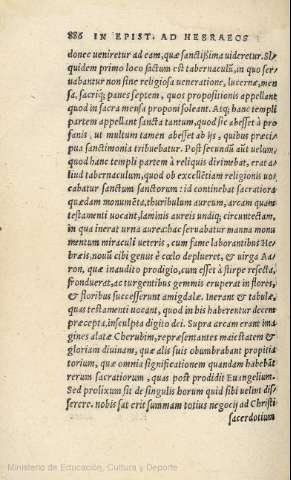 886 IN EPIST. AD HEBRAEOS
donec ueniretur ad eam, quæ sanctißima uideretur. Si-
quidem primo loco factum est tabernaculũ, in quo ser-
uabantur non sine religiosa ueneratione, lucerna, men-
sa, sacriq́; panes septem, quos propositionis appellant
quod in sacra mensa proponi soleant. Atq; hanc templi
partem appellant sancta tantum, quod sic abesset à pro-
fanis, ut multum tamen abesset ab ijs, quibus præci-
pua sanctimonia tribuebatur. Post secundũ aũt uelum,
quod hanc templi partem à reliquis dirimebat, erat a-
liud tabernaculum, quod ob excellẽtiam religionis uo-
cabatur sanctum sanctorum: id continebat sacratiora
quædam monumẽta, thuribulum aureum, arcam quam
testamenti uocant, laminis aureis undiq; circuntectam,
in qua inerat urna aurea: hæc seruabatur manna monu
mentum miraculi ueteris, cum fame laborantibus He-
bræis, nouũ cibi genus è cœlo deplueret, & uirga Aa-
ron, quæ inaudito prodigio, cum esset à stirpe resecta,
fronduerat, ac turgentibus gemmis eruperat in flores,
& floribus succeßerunt amigdalæ. Inerant & tabulæ,
quas testamenti uocant, quod in his haberentur decem
præcepta, insculpta digito dei. Supra arcam erant ima-
gines alatæ Cherubim, repræsentantes maiestatem &
gloriam diuinam, quæ alis suis obumbrabant propitia
torium, quæ omnia significationem quandam habebãt
rerum sacratiorum, quas post prodidit Euangelium.
Sed prolixum sit de singulis horum quid sibi uelint dis-
serere. nobis sat erit summam totius negocij ad Christi
sacerdotium
Ministerio de Educación, Cultura y Deporte